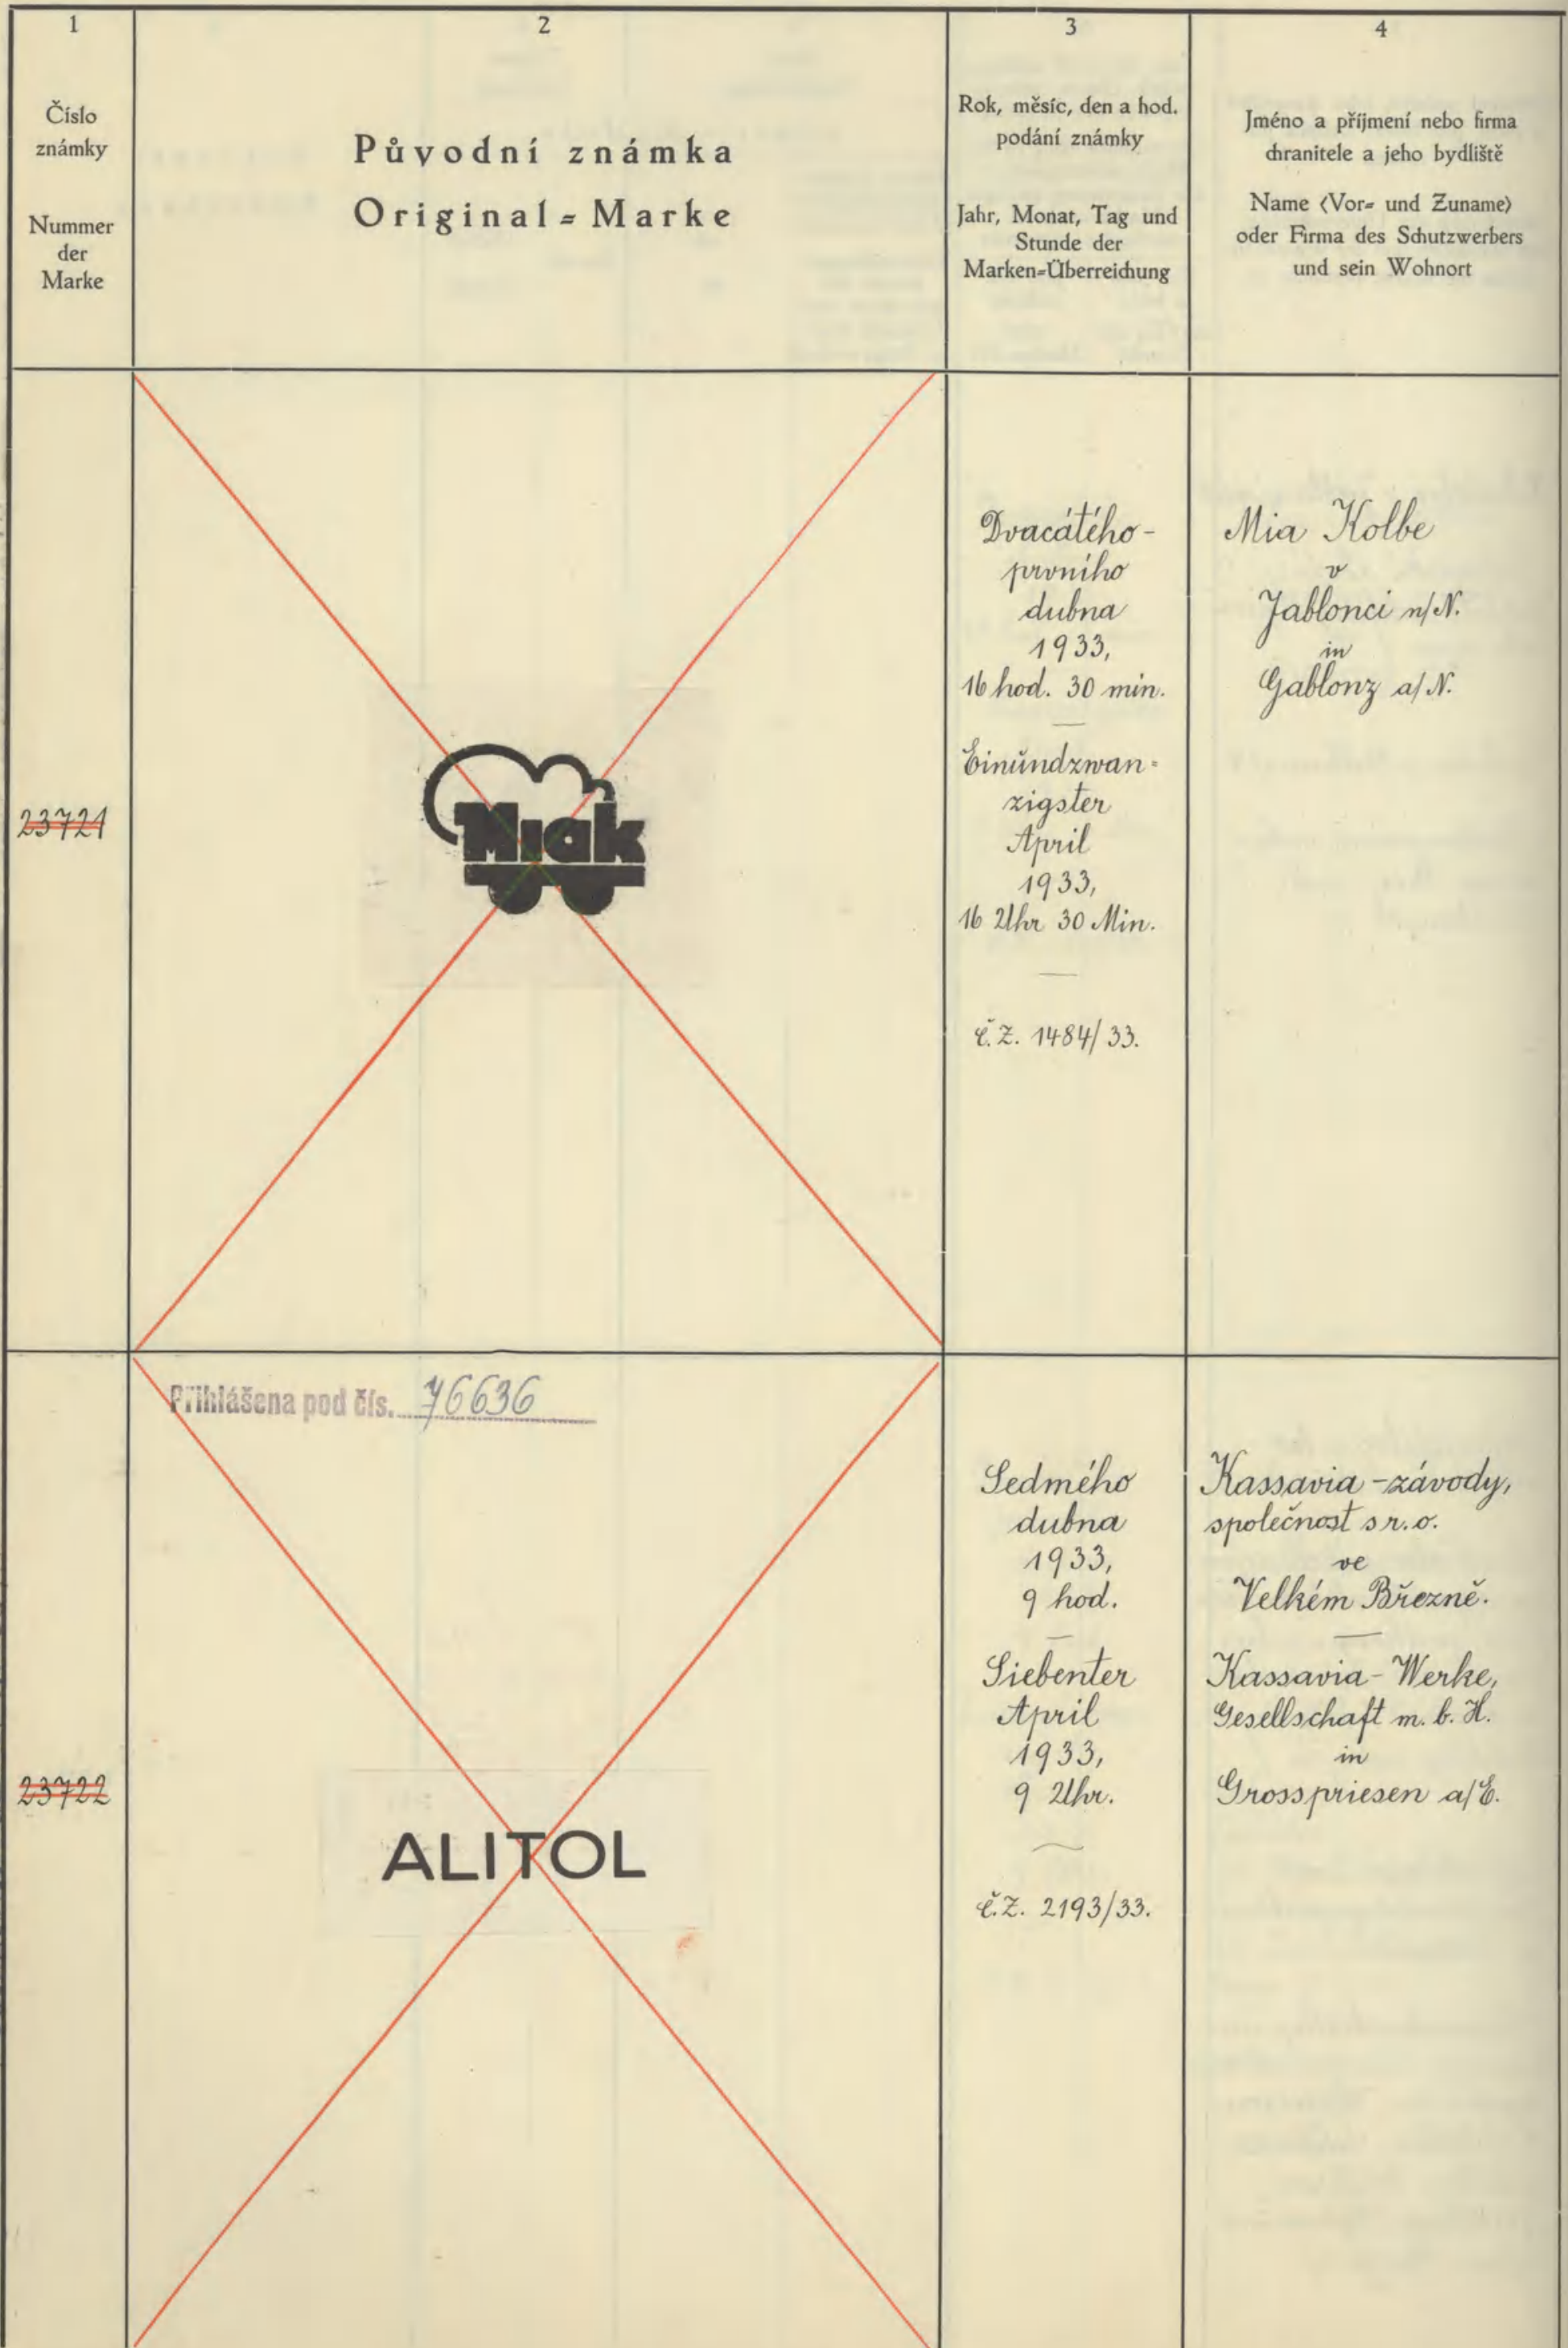 1
Číslo
známky
Nummer
der
Marke
2
Původní známka
Original=Marke
3
Rok, měsíc, den a hod.
podání známky
Jahr, Monat, Tag und
Stunde der
Marken=Überreichung
4
Jméno a příjmení nebo firma
chranitele a jeho bydliště
Name (Vor= und Zuname)
oder Firma des Schutzwerbers
und sein Wohnort
23721
Miak
Dvacátého-
prvního
dubna
1933,
16 hod. 30 min.
Einundzwan=
zigster
April
1933,
16 Uhr 30 Min.
č.z. 1484/33.
Mia Kolbe
v
Jablonci n/N.
in
Gablonz a/N.
23722
Přihlášena pod čís. 76636
ALITOL
Sedmého
dubna
1933,
9 hod.
Siebenter
April
1933,
9 Uhr.
č.z. 2193/33.
Kassavia-závody,
společnost s r.o.
ve
Velkém Březně.
Kassavia-Werke,
Gesellschaft m. b. H.
in
Grosspriesen a/E.